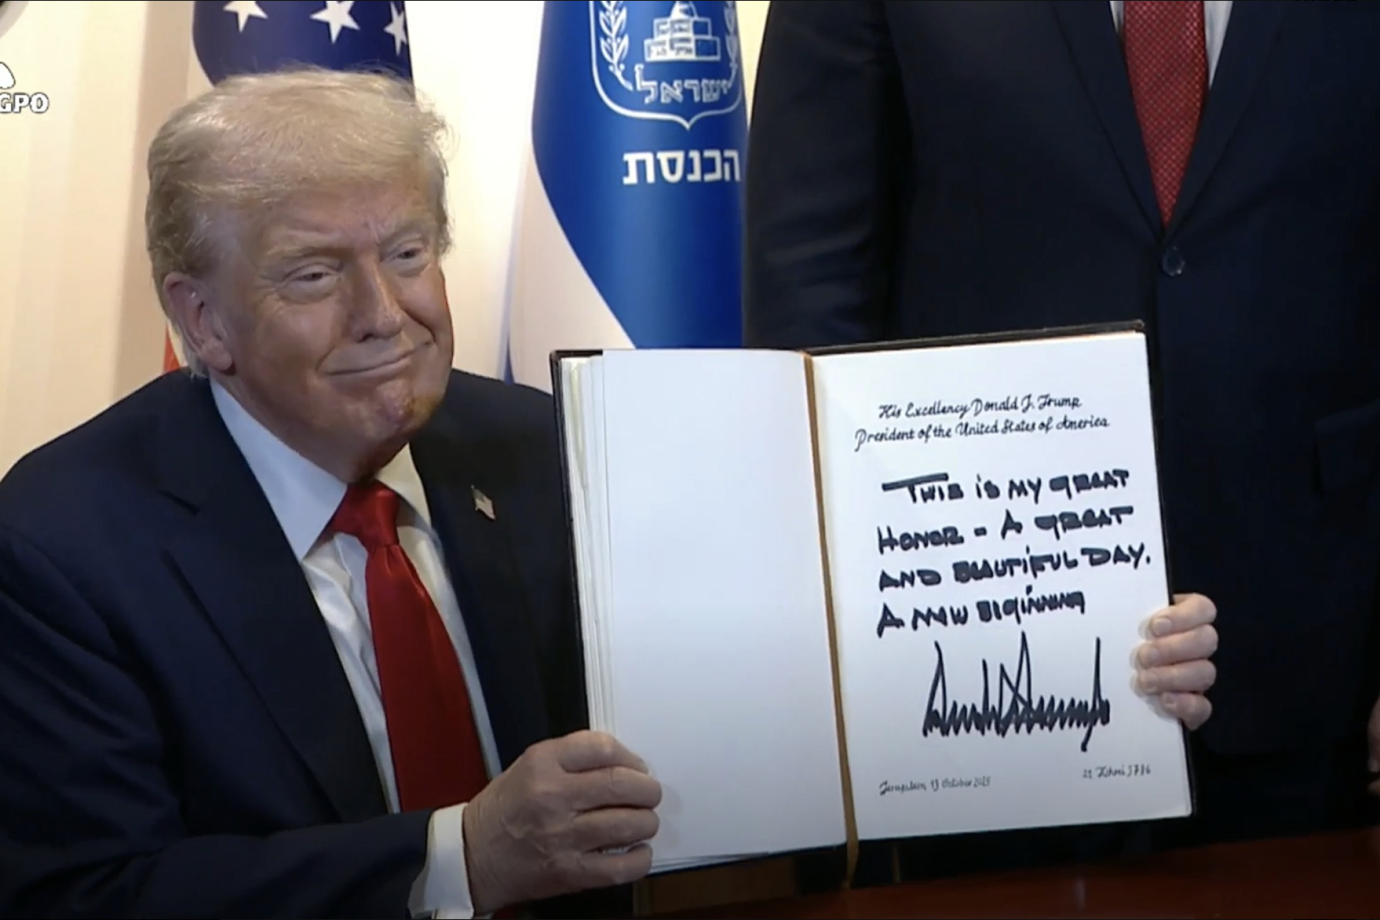 GPO
ישראל
הכנסת
His Excellency Donald J. Trump
President of the United States of America
THIS IS MY GREAT
HONOR - A GREAT
AND BEAUTIFUL DAY.
A NEW BIGINNING
Jerusalem, 13 October 2025
21 Tishrei 5786